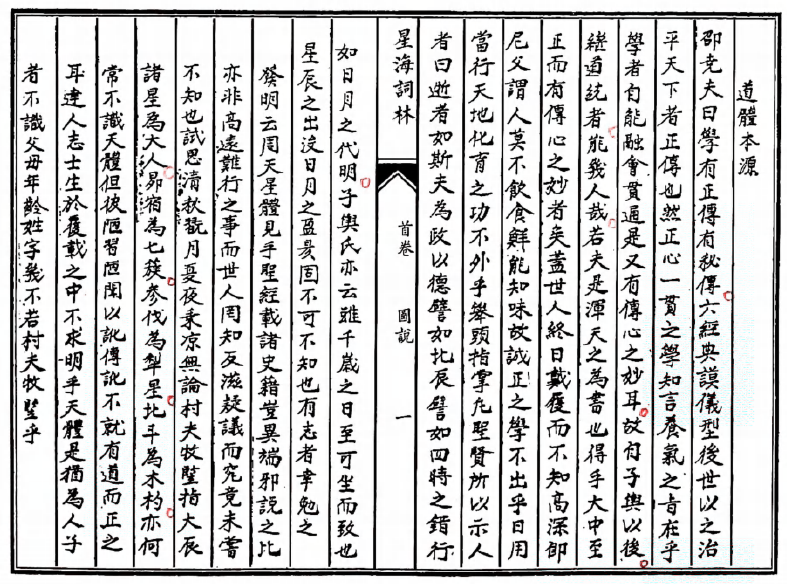 道體本源
邵堯夫曰學有正傳有秘傳六經典謨儀型後世以之治
平天下者正傳也然正心一貫之學知言養氣之旨在乎
學者自能融會貫通是又有傳心之妙耳故自子輿以後
繼道統者能幾人哉若夫是渾天之為書也得乎大中至
正而有傳心之妙者矣蓋世人終日戴履而不知高深卽
尼父謂人莫不飲食鮮能知味故誠正之學不出乎日用
當行天地化育之功不外乎舉頭指掌凡聖賢所以示人
者曰逝者如斯夫為政以德譬如北辰譬如四時之錯行
星海詞林
首卷
圖說
一
如日月之代明子輿氏亦云雖千歲之日至可坐而致也
星辰之出沒日月之盈昃固不可不知也有志者幸勉之
癸明云周天星體見乎聖經載諸史籍豈異端邪說之比
亦非高遠難行之事而世人罔知反滋疑議而究竟未嘗
不知也試思清秋翫月夏夜乘凉無論村夫牧豎指大辰
諸星為大人昴宿為七簇參伐為犁星北斗為木杓亦何
常不識天體但彼陋習陋聞以訛傳訛不就有道而正之
耳達人志士生於覆載之中不求明乎天體是猶為人子
者不識父母年齡姓字幾不若村夫牧豎乎